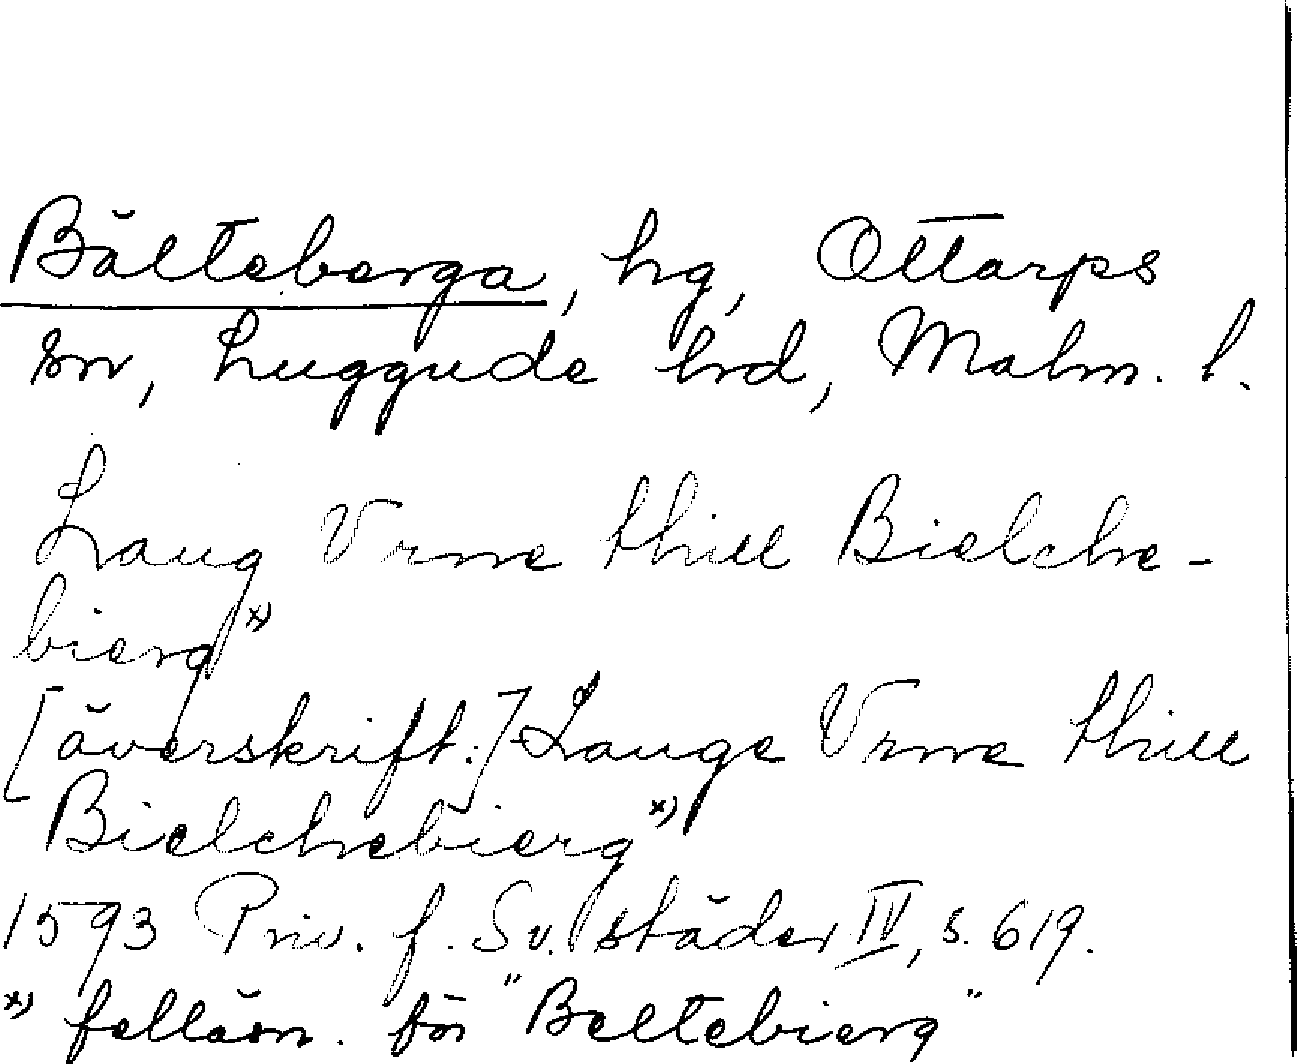 Bälteberga, hg, Ottarps
sn, Luggude hrd, Malm. l.
Laug Vrne thill Bielche-
bierg x)
[överskrift:] Lauge Vrne thill
Bielchebierg x)
1593 Priv. f. Sv. städer IV, s. 619.
x) felläsn. för "Beltebierg"